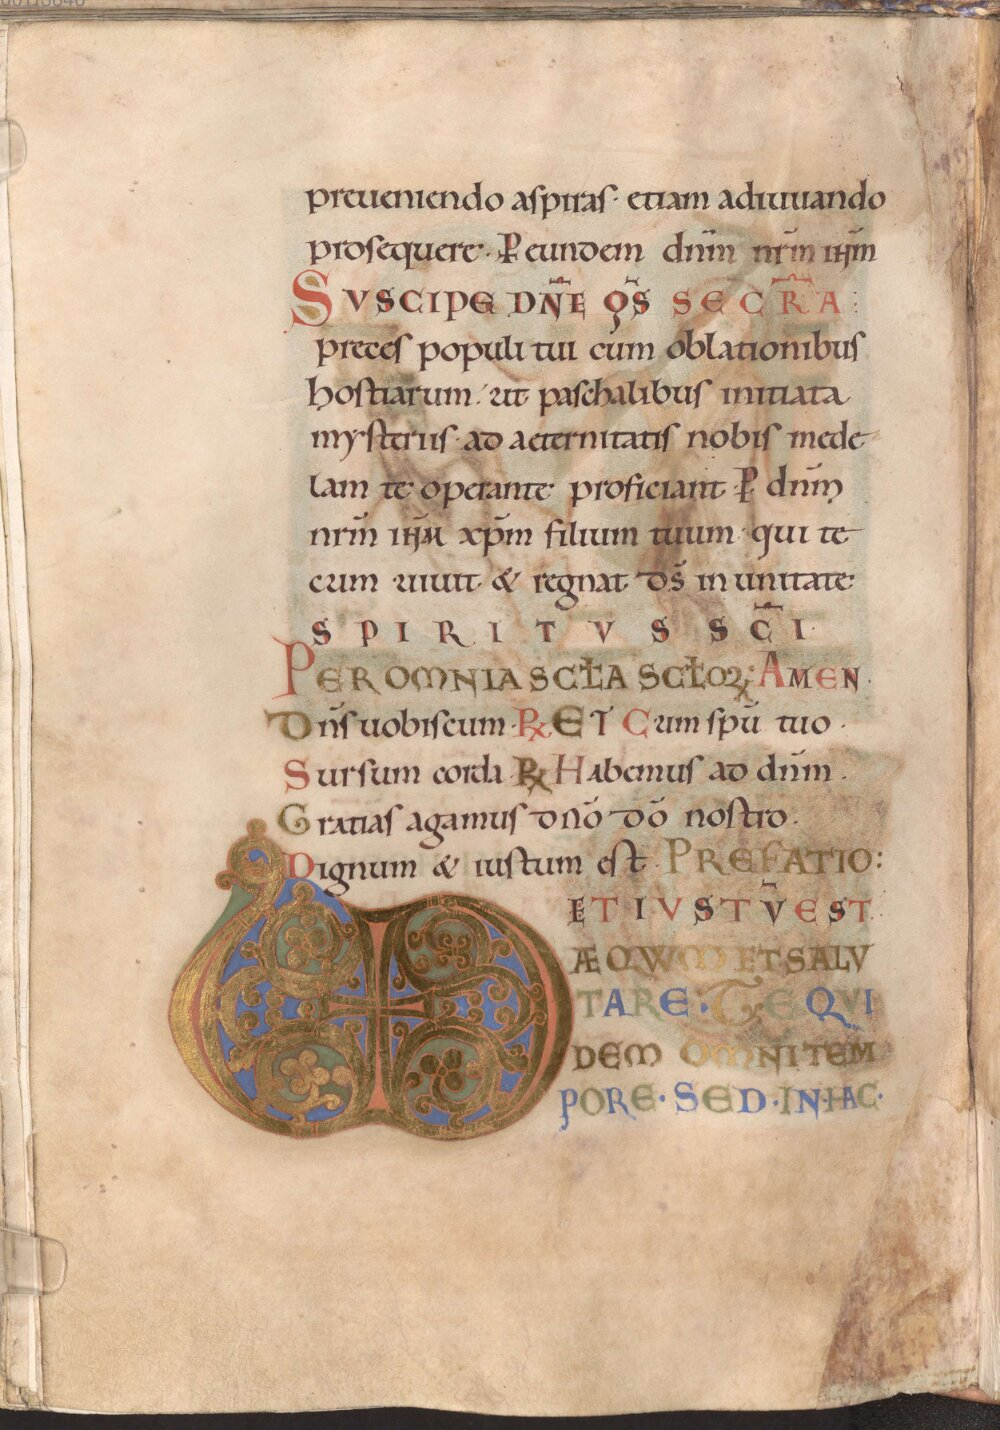 preueniendo aspiras· etiam adiuuando
prosequere· P̲ eundem dnm̄ nrm̄ ihm̄
SVSCIPE DN̄E QS̄ SECR̄A:
preces populi tui cum oblationibus
hostiarum· ut paschalibus initiata
mysteriis· ad aeternitatis nobis mede
lam te operante proficiant P̲ dnm̄
nrm̄ ihm̄ xpm̄ filium tuum· qui te
cum uiuit & regnat ds̄ in unitate
SPIRITVS SC̄I·
PER OMNIA SCŁA SCŁOꝜ: AMEN·
Dn̄s uobiscum· ℞ ET Cum spū tuo·
Sursum corda ℞ Habemus ad dnm̄·
Gratias agamus dnō dō nostro·
Dignum & iustum est· PREFATIO:
ET IVSTV̄ EST
ÆQWM ET SALV
TARE· TE QVI
DEM OMNI TEM
PORE· SED· IN·HAC·